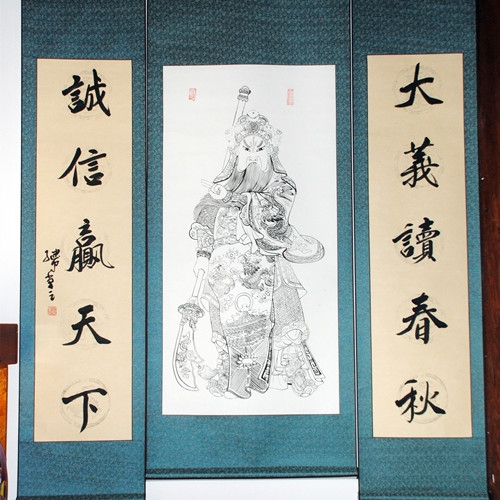 大義讀春秋
誠信贏天下